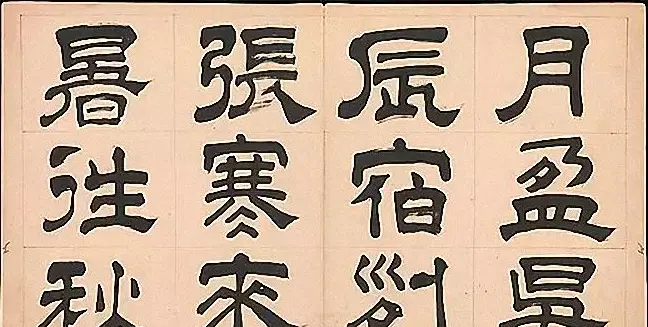 月盈昃
辰宿列
張寒来
暑往秋